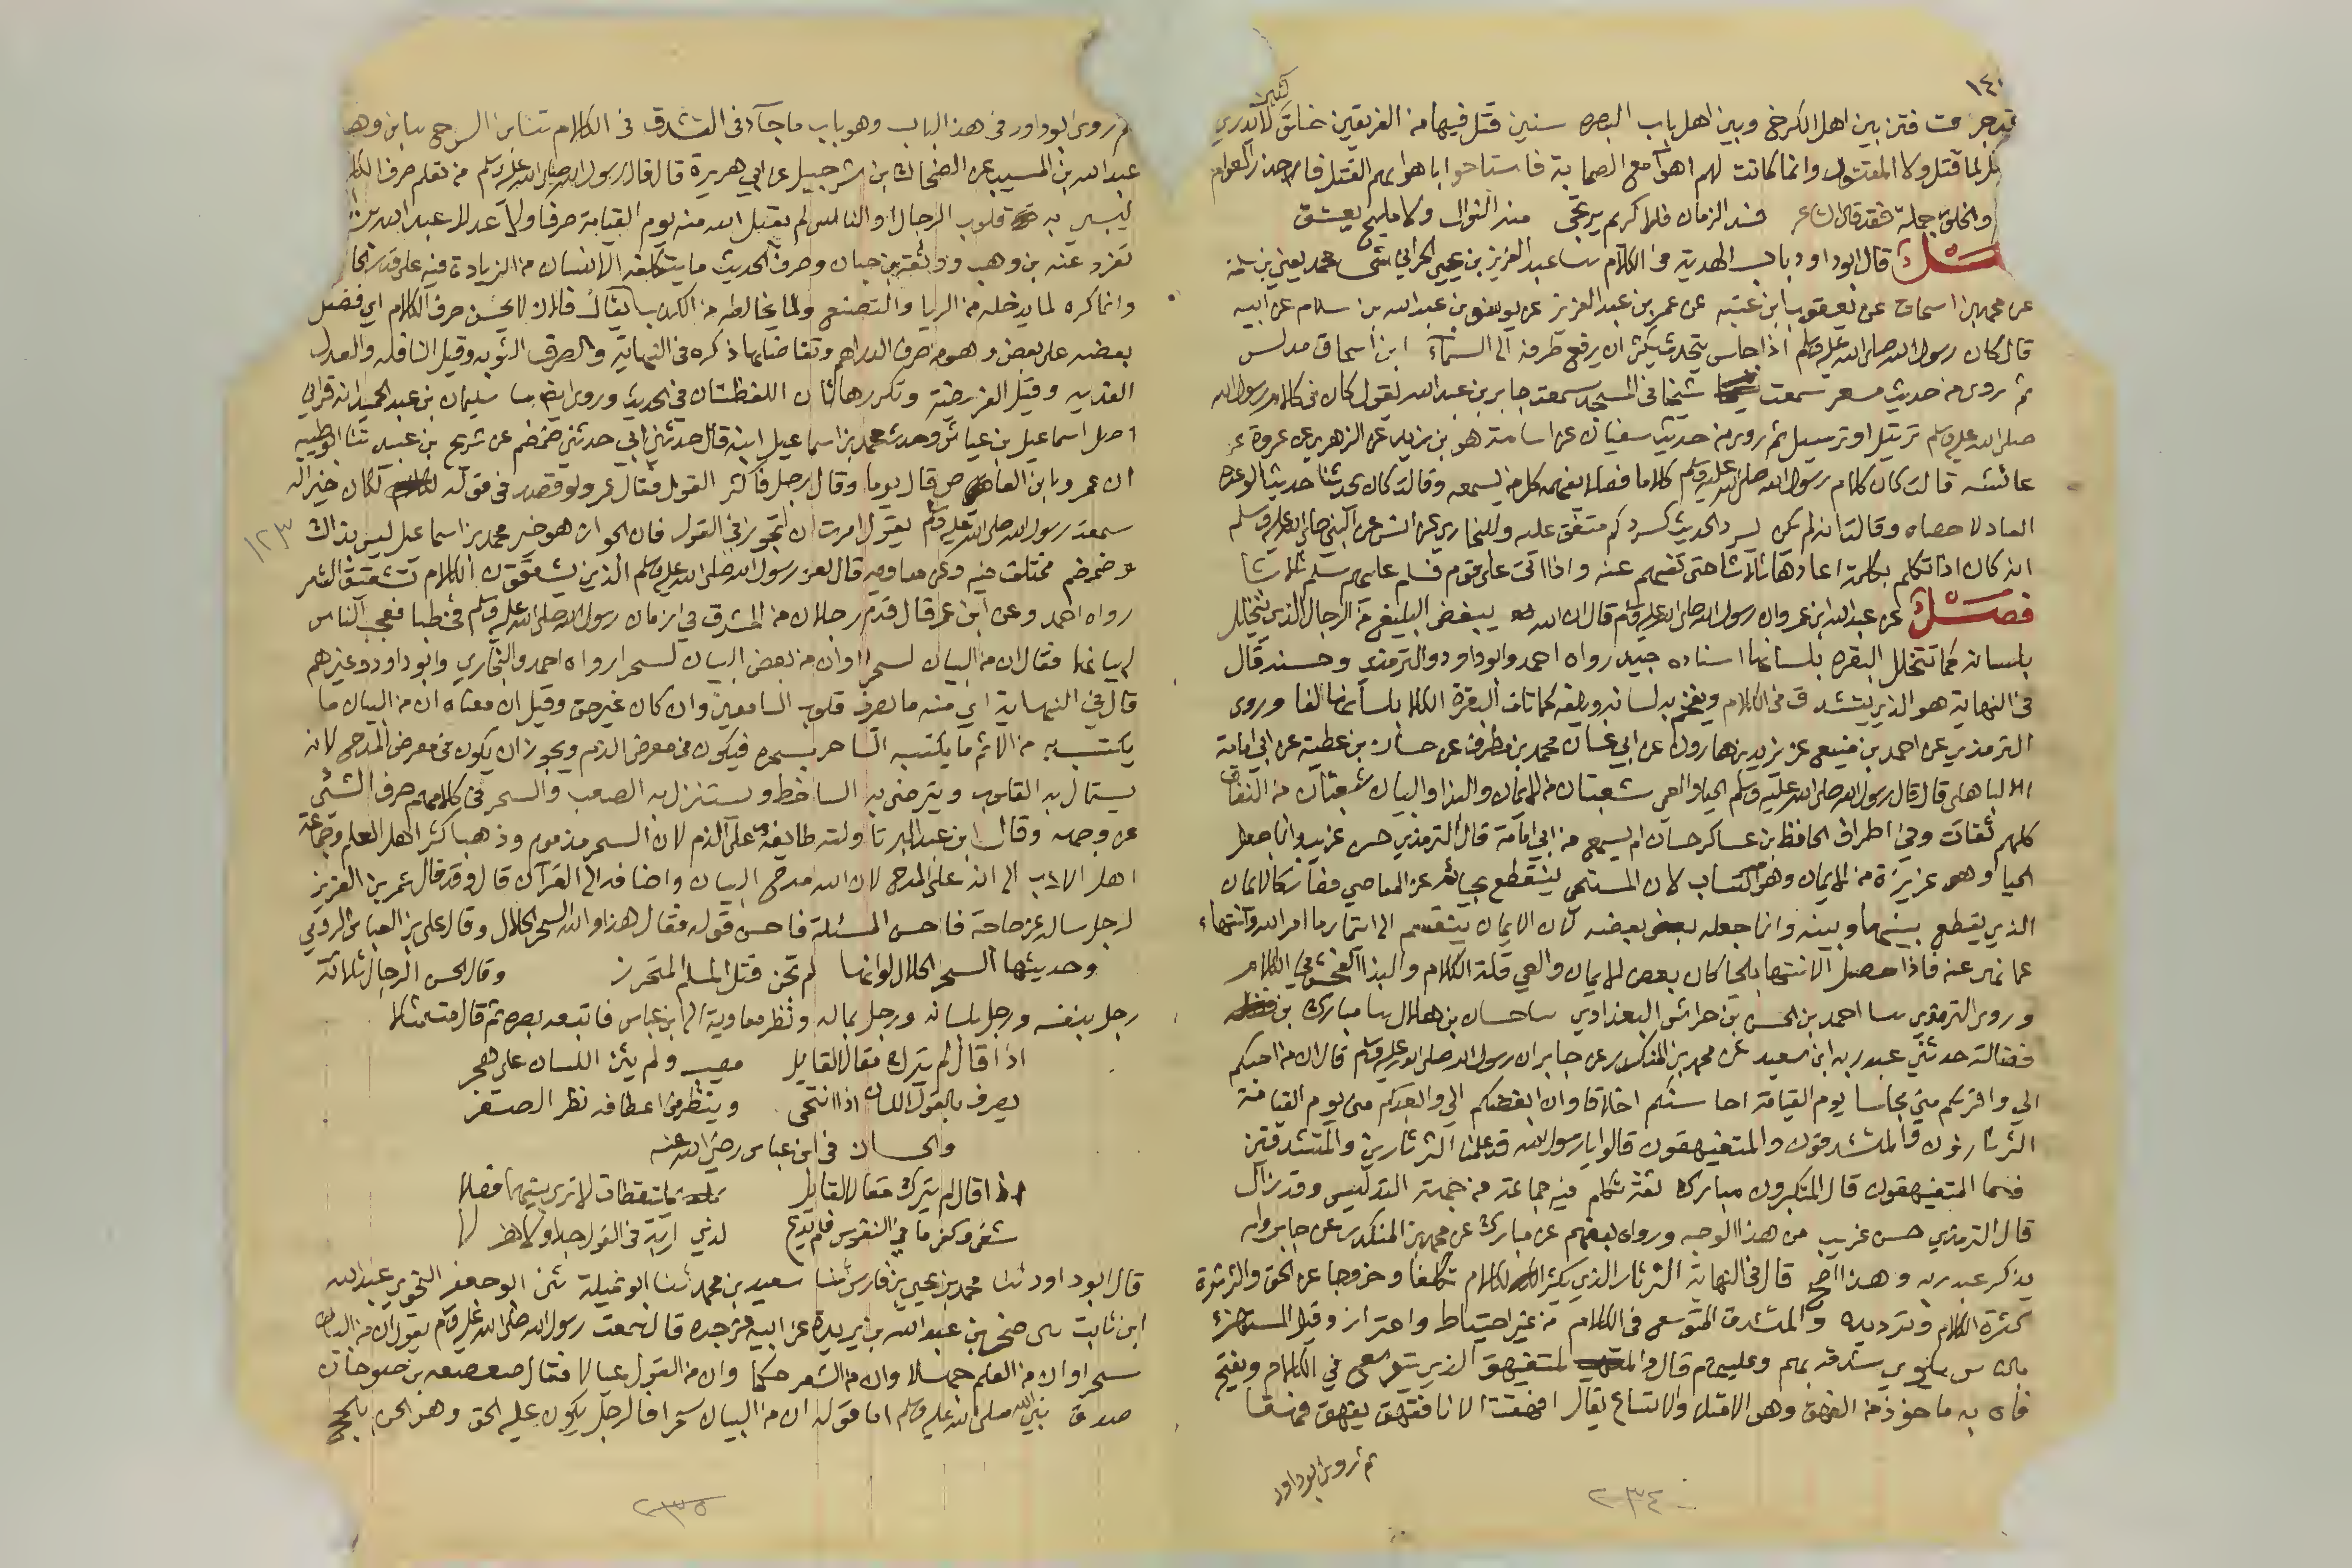 ١٤٠
جرت فتن بين اهل الكرخ وبين اهل باب البصره سنين قتل فيها من الفريقين خلق كثير لا يدري
القاتل لما قتل ولا المقتول وانما كانت لهم اهوآ مع الصحابة فاستباحوا باهوايهم القتل فاحذر العوام
والخلق جملة فقد قال الشاعر فسد الزمان فلا كريم يرتجى منه النوال ولا مليح يعشق
فصل قال ابو داود باب الهدي في الكلام سا عبد العزيز بن يحيى الحراني ثنى محمد يعني بن سلمة
عن محمد بن اسحاق عن يعقوب ابن عتبه عن عمر بن عبد العزيز عن يوسف بن عبد الله بن سلام عن ابيه
قال كان رسول الله صلى الله عليه وسلم اذا جلس يتحدث يكثر ان يرفع طرفه الى السمآء ابن اسحاق مدلس
ثم روى من حديث مسعر سمعت شيخا في المسجد سمعت جابر بن عبد الله يقول كان في كلام رسول الله
صلى الله عليه وسلم ترتيل او ترسيل ثم روى من حديث سفيان عن اسامة هو بن زيد عن الزهري عن عروة عن
عائشه قالت كان كلام رسول الله صلى الله عليه وسلم كلاما فصلا يفهمه كل من يسمعه وقالت كان يحدثنا حديثا لو عده
العاد لاحصاه وقالت انه لم يكن يسرد الحديث كسردكم متفق عليه وللبخاري عن انس عن النبي صلى الله عليه وسلم
انه كان اذا تكلم بكلمة اعادها ثلاثا حتى تفهم عنه واذا اتى على قوم فسلم عليهم سلم ثلاثا
فصل عن عبد الله ابن عمرو ان رسول الله صلى الله عليه وسلم قال ان الله يبغض البليغ من الرجال الذي يتخلل
بلسانه كما تتخلل البقره بلسانها اسناده جيد رواه احمد وابو داود والترمذي وحسنه قال
في النهاية هو الذي يتشدق في الكلام ويفخم به لسانه ويلفه كما تلف البقرة الكلا بلسانها لفا وروى
الترمذي عن احمد بن منيع عن يزيد بن هارون عن ابي غسان محمد بن مطرف عن حسان بن عطية عن ابي امامة
الباهلي قال قال رسول الله صلى الله عليه وسلم الحيا والعي شعبتان من الايمان والبذا والبيان شعبتان من النفاق
كلهم ثقات وفي اطراف الحافظ بن عساكر حسان لم يسمع من ابي امامة قال الترمذي حسن غريب وانما جعل
الحيا وهو غريزة من الايمان وهو اكتساب لان المستحي ينقطع بحيائه عن المعاصي فصار كالايمان
الذي يقطع بينهما وبينه وانما جعله بعضه لان الايمان ينقسم الى ايتمار بما امر الله وانتهاء
عما نهى عنه فاذا حصل الانتها بالحيا كان بعض الايمان والعي قلة الكلام والبذا الفحش في الكلام
وروى الترمذي سا احمد بن الحسن بن خراش البغدادي سا حسان بن هلال سا مبارك بن
فضالة حدثني عبد ربه ابن سعيد عن محمد بن المنكدر عن جابر ان رسول الله صلى الله عليه وسلم قال ان من احبكم
الي واقربكم مني مجلسا يوم القيامة احاسنكم اخلاقا وان ابغضكم الي وابعدكم مني يوم القيامة
الثرثارون والمتشدقون والمتفيهقون قالوا يا رسول الله قد علمنا الثرثارين والمتشدقين
فما المتفيهقون قال المتكبرون مبارك ثقة تكلم فيه جماعة من جهة التدليس وقد زال
قال الترمذي حسن غريب من هذا الوجه ورواه بعضهم عن مبارك عن محمد بن المنكدر عن جابر ولم
يذكر عبد ربه وهذا اصح قال في النهاية الثرثار الذي يكثر الكلام تكلفا وخروجا عن الحق والثرثرة
كثرة الكلام وترديده والمتشدق المتوسع في الكلام من غير احتياط واحتراز وقيل المستهزئ
بالناس يلوي شدقه بهم وعليهم قال والمتفيهق الذي يتوسع في الكلام ويفتح
فاه به ماخوذ من الفهق وهو الامتلا والاتساع يقال افهقت الانا ففهق يفهق فهقا
ثم روى ابو داود
٢٣٤
ثم روى ابو داود في هذا الباب وهو باب ما جآء في التشدق في الكلام ثنا ابن السرح سا ابن وهب
عبد الله بن المسيب عن الضحاك بن شرحبيل عن ابي هريرة قال قال رسول الله صلى الله عليه وسلم من تعلم صرف الكلام
ليسبي به قلوب الرجال او الناس لم يقبل الله منه يوم القيامة صرفا ولا عدلا عبد الله بن
تفرد عنه بن وهب ووثقه بن حبان وصرف الحديث ما يتكلفه الانسان من الزيادة فيه على قدر الحا
وانما كره لما يدخله من الريا والتصنع ولما يخالطه من الكذب يقال فلان لا يحسن صرف الكلام اي فضل
بعضه على بعض وهو من صرف الدراهم وتفاضلها ذكره في النهاية والصرف التوبه وقيل النافله والعدل
الفديه وقيل الفريضة وتكررها تان اللفظتان في الحديث وروى ايضا سا سليمان بن عبد الحميد انه قرا في
اصل اسماعيل بن عياش وحدثه محمد بن اسماعيل ابنه قال حدثني ابي حدثني ضمضم عن شريح بن عبيد ثنا ابو ظبيه
ان عمرو ابن العاص قال يوما وقال رجل فاكثر القول فقال عمرو لو قصد في قوله لكان خيرا له
سمعت رسول الله صلى الله عليه وسلم يقول امرت ان اتجوز في القول فان الجواز هو خير محمد بن اسماعيل ليس بذاك
١٢٣
وضمضم مختلف فيه وعن معاويه قال لعن رسول الله صلى الله عليه وسلم الذين يشققون الكلام تشقيق الشعر
رواه احمد وعن ابن عمر قال قدم رجلان من المشرق في زمان رسول الله صلى الله عليه وسلم فخطبا فعجب الناس
لبيانهما فقال ان من البيان لسحرا او ان من بعض البيان لسحرا رواه احمد والبخاري وابو داود وغيرهم
قال في النهاية اي منه ما يصرف قلوب السامعين وان كان غير حق وقيل ان معناه ان من البيان ما
يكتسب به من الاثم ما يكتسبه الساحر بسحره فيكون في معرض الذم ويجوز ان يكون في معرض المدح لانه
يستمال به القلوب ويترضى به الساخط ويستنزل به الصعب والسحر في كلامهم صرف الشئ
عن وجهه وقال ابن عبد البر تاولته طايفة على الذم لان السحر مذموم وذهب اكثر اهل العلم وجماعة
اهل الادب الى انه على المدح لان الله مدح البيان واضافه الى القرآن قال وقد قال عمر بن العزيز
لرجل ساله عن حاجة فاحسن المسئلة فاحسن قوله فقال هذا والله السحر الحلال وقال علي بن العباس الرومي
وحديثها السحر الحلال لو انها لم تجن قتل المسلم المتحرز وقال الحسن الرجال ثلاثة
رجل بنفسه ورجل بلسانه ورجل بماله ونظر معاوية الى ابن عباس فاتبعه بصره ثم قال متمثلا
اذا قال لم يترك مقالا لقايل مصيب ولم يثن اللسان على هجر
يصرف بالقول اللسان اذا انتحى وينظر في اعطافه نظر الصقر
ولحسان في ابن عباس رضي الله عنه
اذا قال لم يترك مقالا لقايل بملتقطات لا ترى بينهما فصلا
شفى وكفى ما في النفوس فلم يدع لذي اربة في القول جدا ولا هزلا
قال ابو داود ثنا محمد بن يحيى بن فارس ثنا سعيد بن محمد ثنا ابو تميلة ثنى ابو جعفر النحوي عبد الله
ابن ثابت ثنى صخر بن عبد الله بن بريدة عن ابيه عن جده قال سمعت رسول الله صلى الله عليه وسلم يقول ان من البيان
سحرا وان من العلم جهلا وان من الشعر حكما وان من القول عيالا فقال صعصعه بن صوحان
صدق نبي الله صلى الله عليه وسلم اما قوله ان من البيان سحرا فالرجل يكون عليه الحق وهو الحن بالحجج
٢٣٥